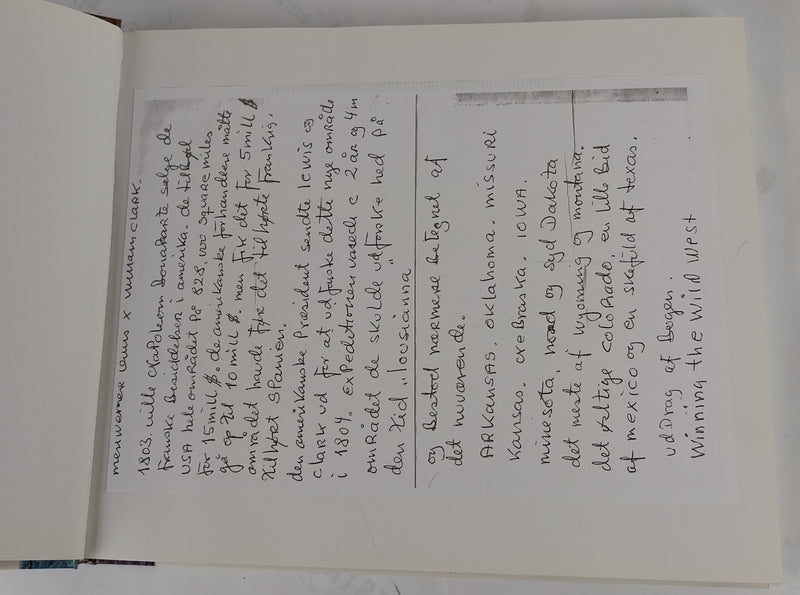 meriwether Lewis x william clark.
1803. ville Napoleom Bonaparte selge de
franske Besiddelser i amerika. de tilbød
USA hele området på 828,000 square miles
for 15 mill $. de amerikanske forhandlere måtte
gå op til 10 mill $. men fik det for 5 mill $
området havde før det tilhørte Frankrig,
tilhørt Spanien.
den amerikanske President sendte lewis og
clark ud for at udforske dette nye område
i 1804. Expeditionen varede c 2 år og 4 m
området de skulde udforske hed på
den tid "lousianna"
og Bestod nærmere betegnet af
det nuværende.
ARKANSAS. OKlahoma. missuri
Kansas. NeBraska. IOWA.
minnesota, nord og syd Dakota
det meste af wyoming og montana.
det østlige coloRado, en lille bid
af mexico og en skefuld af texas.
udDrag af bogen.
Winning the Wild West